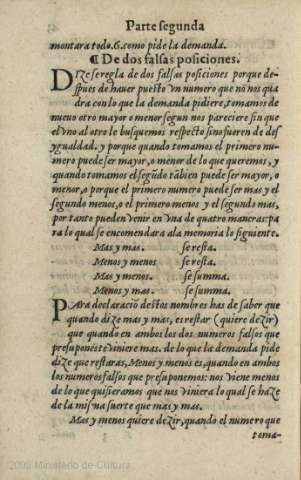 Parte segunda
montara todo. 6. como pide la demanda.
¶ De dos falsas posiciones.
DIze se regla de dos falsas posiciones porque de-
spues de hauer puesto vn numero que nõ nos qua
dra con lo que la demanda pidiere, tomamos de
nueuo otro mayor o menor segun nos pareciere sin que
el vno al otro le busquemos respecto sino fueren de des
ygualdad. y porque quando tomamos el primero nu-
mero puede ser mayor, o menor de lo que queremos, y
quando tomamos el segũdo tãbien puede ser mayor, o
menor, o porque el primero numero puede ser mas y el
segundo menos, o el primero menos y el segundo mas,
por tanto pueden venir en vna de quatro maneras: pa
ra lo qual se encomendara a la memoria lo siguiente.
Mas y mas. se resta.
Menos y menos se resta.
Mas y menos. se summa.
Menos y mas. se summa.
PAra declaraciõ destos nombres has de saber que
quando dize mas y mas, es restar (quiere dezir)
que quando en ambos los dos numeros falsos que
presuponiste viniere mas. de lo que la demanda pide
dize que restaras, Menos y menos es, quando en ambos
los numeros falsos que presuponemos: nos viene menos
de lo que quisieramos que nos viniera lo qual se haze
de la misma suerte que mas y mas.
Mas y menos quiere dezir, quando el numero que
toma-
2009 Ministerio de Cultura